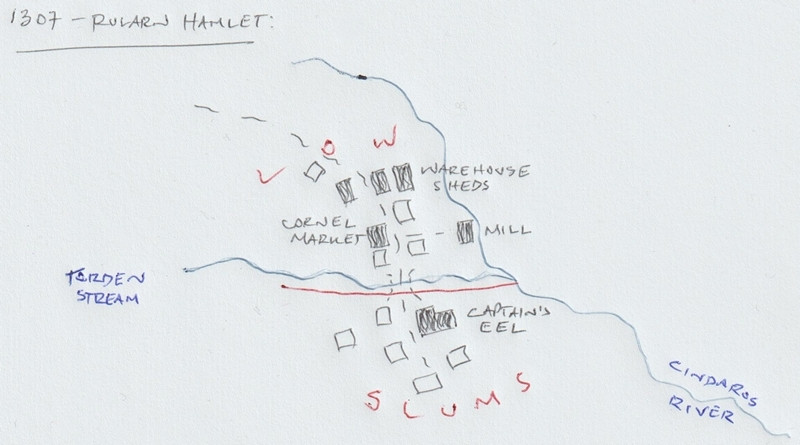 1307 - RULARN HAMLET:
L O W
WAREHOUSE
SHEDS
CORNEL
MARKET
MILL
STREAM
CAPTAIN'S
EEL
S L U M S
CINDAROS
RIVER